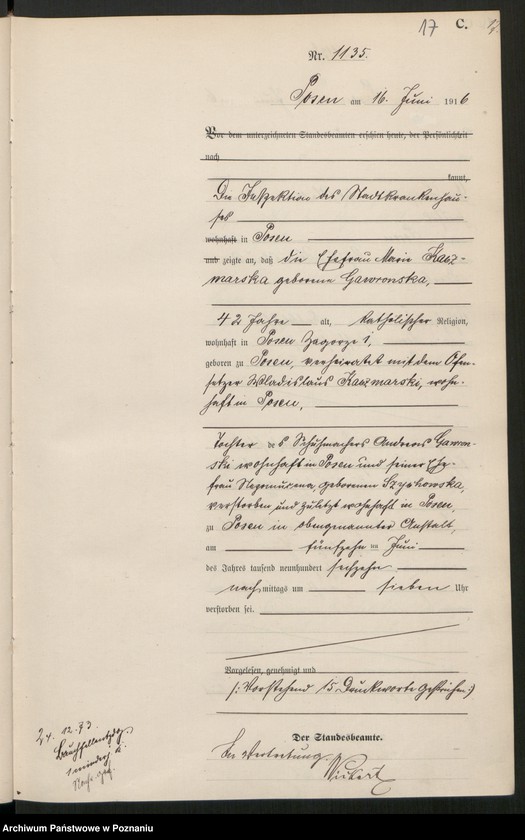 17 C.
Nr. 1135.
Posen am 16. Juni 1916
Vor dem unterzeichneten Standesbeamten erschien heute, der Persönlichkeit
nach
kannt,
Die Inspektion des Stadtkrankenhau-
ses
wohnhaft in Posen
und zeigte an, daß die Ehefrau Marie Kacz-
marska geborene Gawronska,
42 Jahre alt, katholischer Religion,
wohnhaft in Posen Zagorze 1,
geboren zu Posen, verheiratet mit dem Ofen-
setzer Wladislaus Kaczmarski, wohn-
haft in Posen,
Tochter des Schuhmachers Andreas Gawron-
ski wohnhaft in Posen und seiner Ehe-
frau geborenen
verstorben und zuletzt wohnhaft in Posen,
zu Posen in obengenannter Anstalt,
am fünfzehn ten Juni
des Jahres tausend neunhundert sechzehn
nach mittags um sieben Uhr
verstorben sei.
Vorgelesen, genehmigt und
/: Vorstehend 15 Druckworte gestrichen :/
Der Standesbeamte.
In Vertretung.
24. 12. 73.
Archiwum Państwowe w Poznaniu